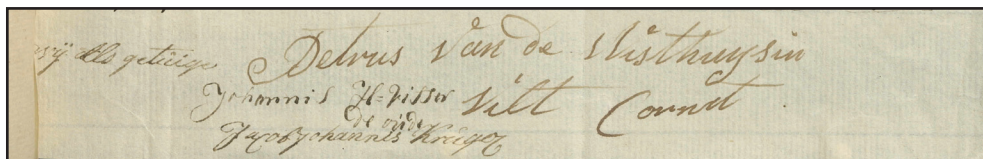 wij als getuige Petrus Van de Wisthuysin
Johannis H=Visser Vilt Cornet
de oude
Jacob Johannis Kruger